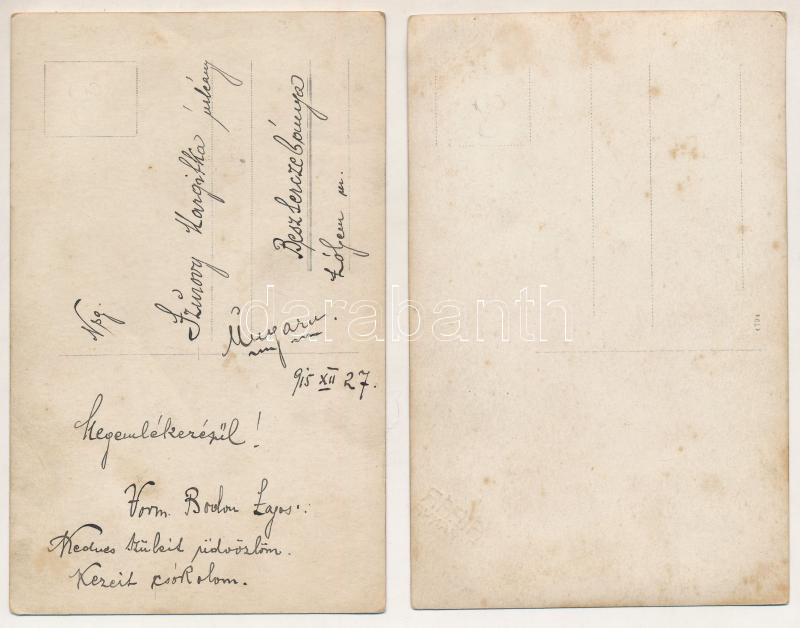 Nsg.
Szurovy Margitka
úrleány
Beszterczebánya
Zólyom m.
Ungarn.
915 XII 27.
Megemlékezésül!
Vorm. Bodon Lajos.
Kedves szüleit üdvözlöm.
Kezeit csókolom.
darabanth
4704